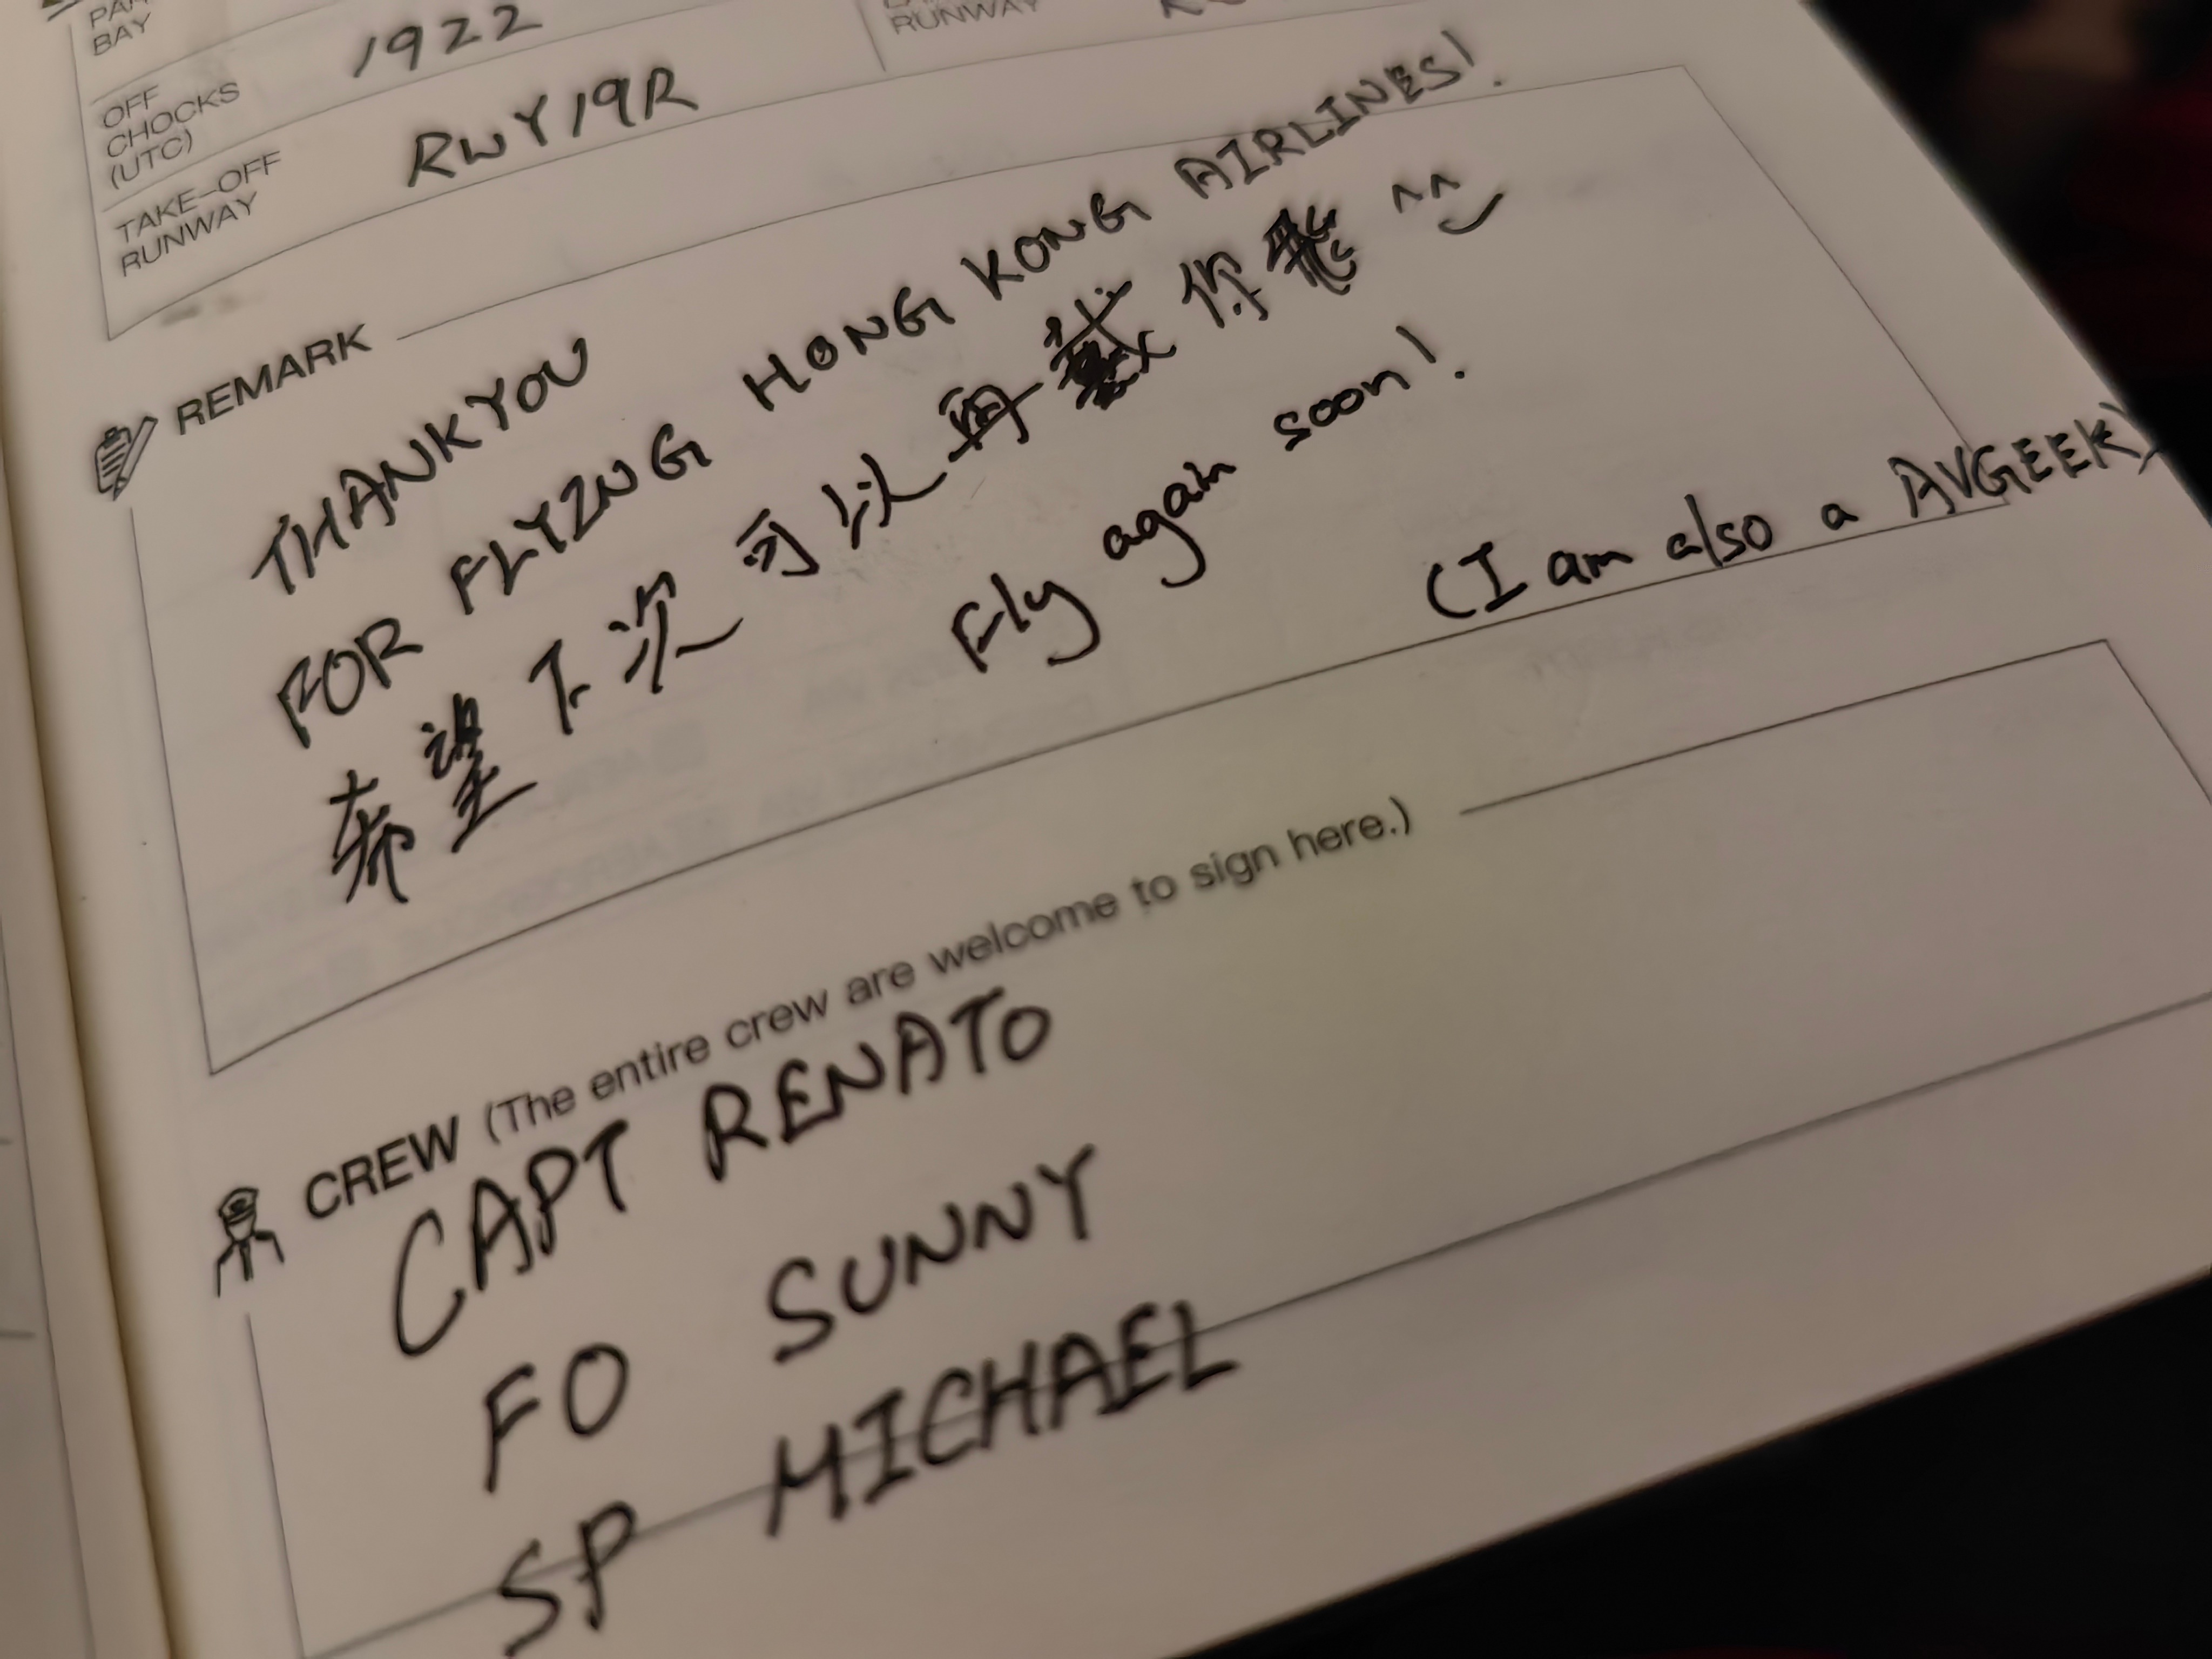 BAY
OFF CHOCKS (UTC) 1922
RUNWAY
TAKE-OFF RUNWAY RWY19R
REMARK
THANKYOU
FOR FLYING HONG KONG AIRLINES!
希望下次可以再載你飛 ^^
Fly again soon!
(I am also a AVGEEK)
CREW (The entire crew are welcome to sign here.)
CAPT RENATO
FO SUNNY
SP MICHAEL